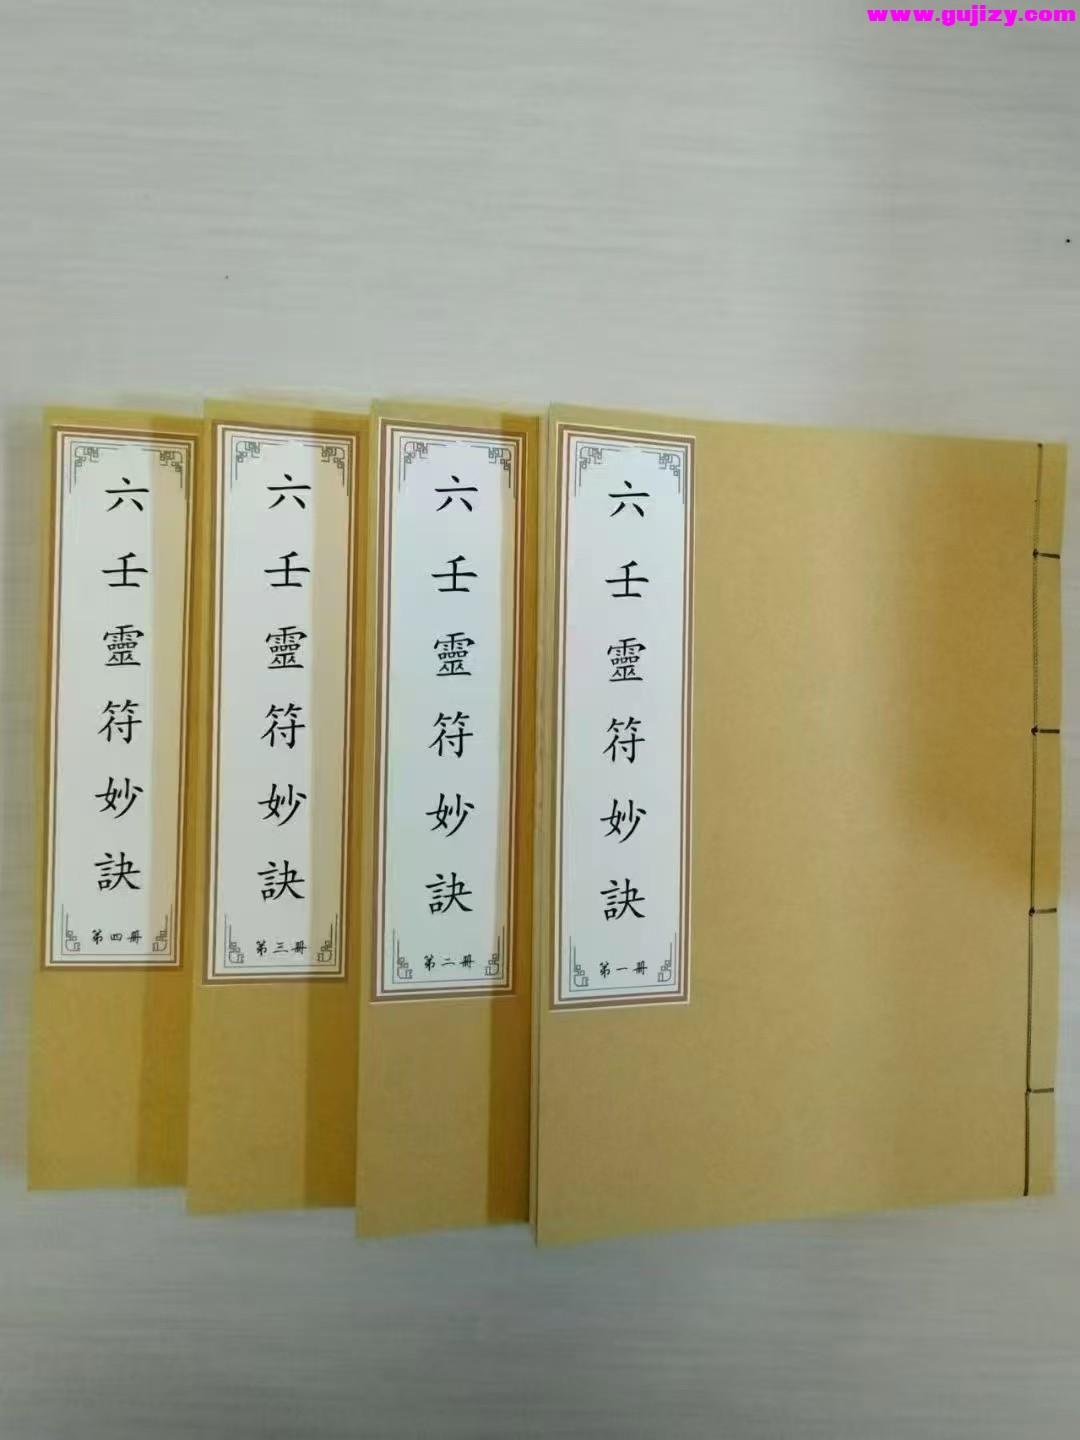 www.gujizy.com
六壬靈符妙訣
第一冊
六壬靈符妙訣
第二冊
六壬靈符妙訣
第三冊
六壬靈符妙訣
第四冊